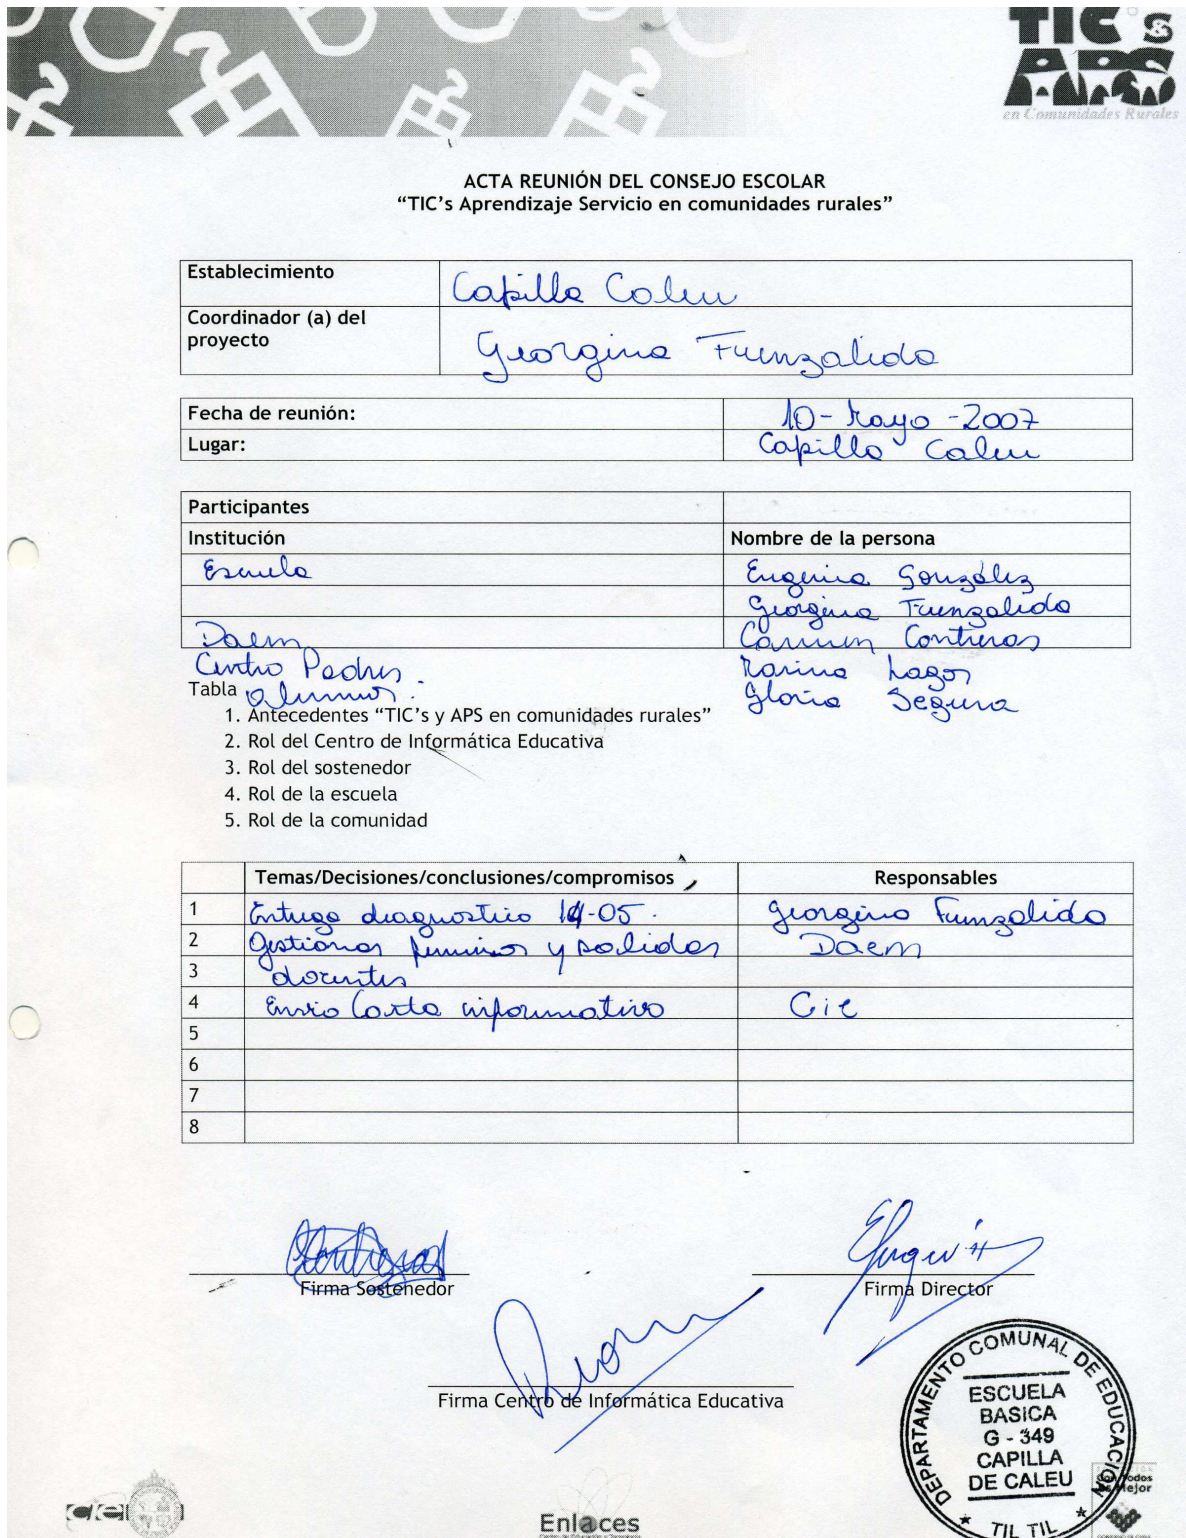 TIC's &
APS
en Comunidades Rurales
ACTA REUNIÓN DEL CONSEJO ESCOLAR
“TIC’s Aprendizaje Servicio en comunidades rurales”
Establecimiento Capilla Caleu
Coordinador (a) del
proyecto Georgina Fuenzalida
Fecha de reunión: 10-Mayo-2007
Lugar: Capilla Caleu
Participantes
Institución Nombre de la persona
Escuela Eugenia González
Georgina Fuenzalida
Daem Carmen Contreras
Centro Padres Marina Lagos
Tabla alumnos. Gloria Segura
1. Antecedentes “TIC’s y APS en comunidades rurales”
2. Rol del Centro de Informática Educativa
3. Rol del sostenedor
4. Rol de la escuela
5. Rol de la comunidad
Temas/Decisiones/conclusiones/compromisos Responsables
1 Entrega diagnostico 14-05. Georgina Fuenzalida
2 Gestionar permisos y salidas Daem
3 docentes
4 Envio Carta informativo Cie
5
6
7
8
Firma Sostenedor
Firma Director
Firma Centro de Informática Educativa
DEPARTAMENTO COMUNAL DE EDUCACION
ESCUELA
BASICA
G - 349
CAPILLA
DE CALEU
★ TIL TIL ★
cie
Enlaces